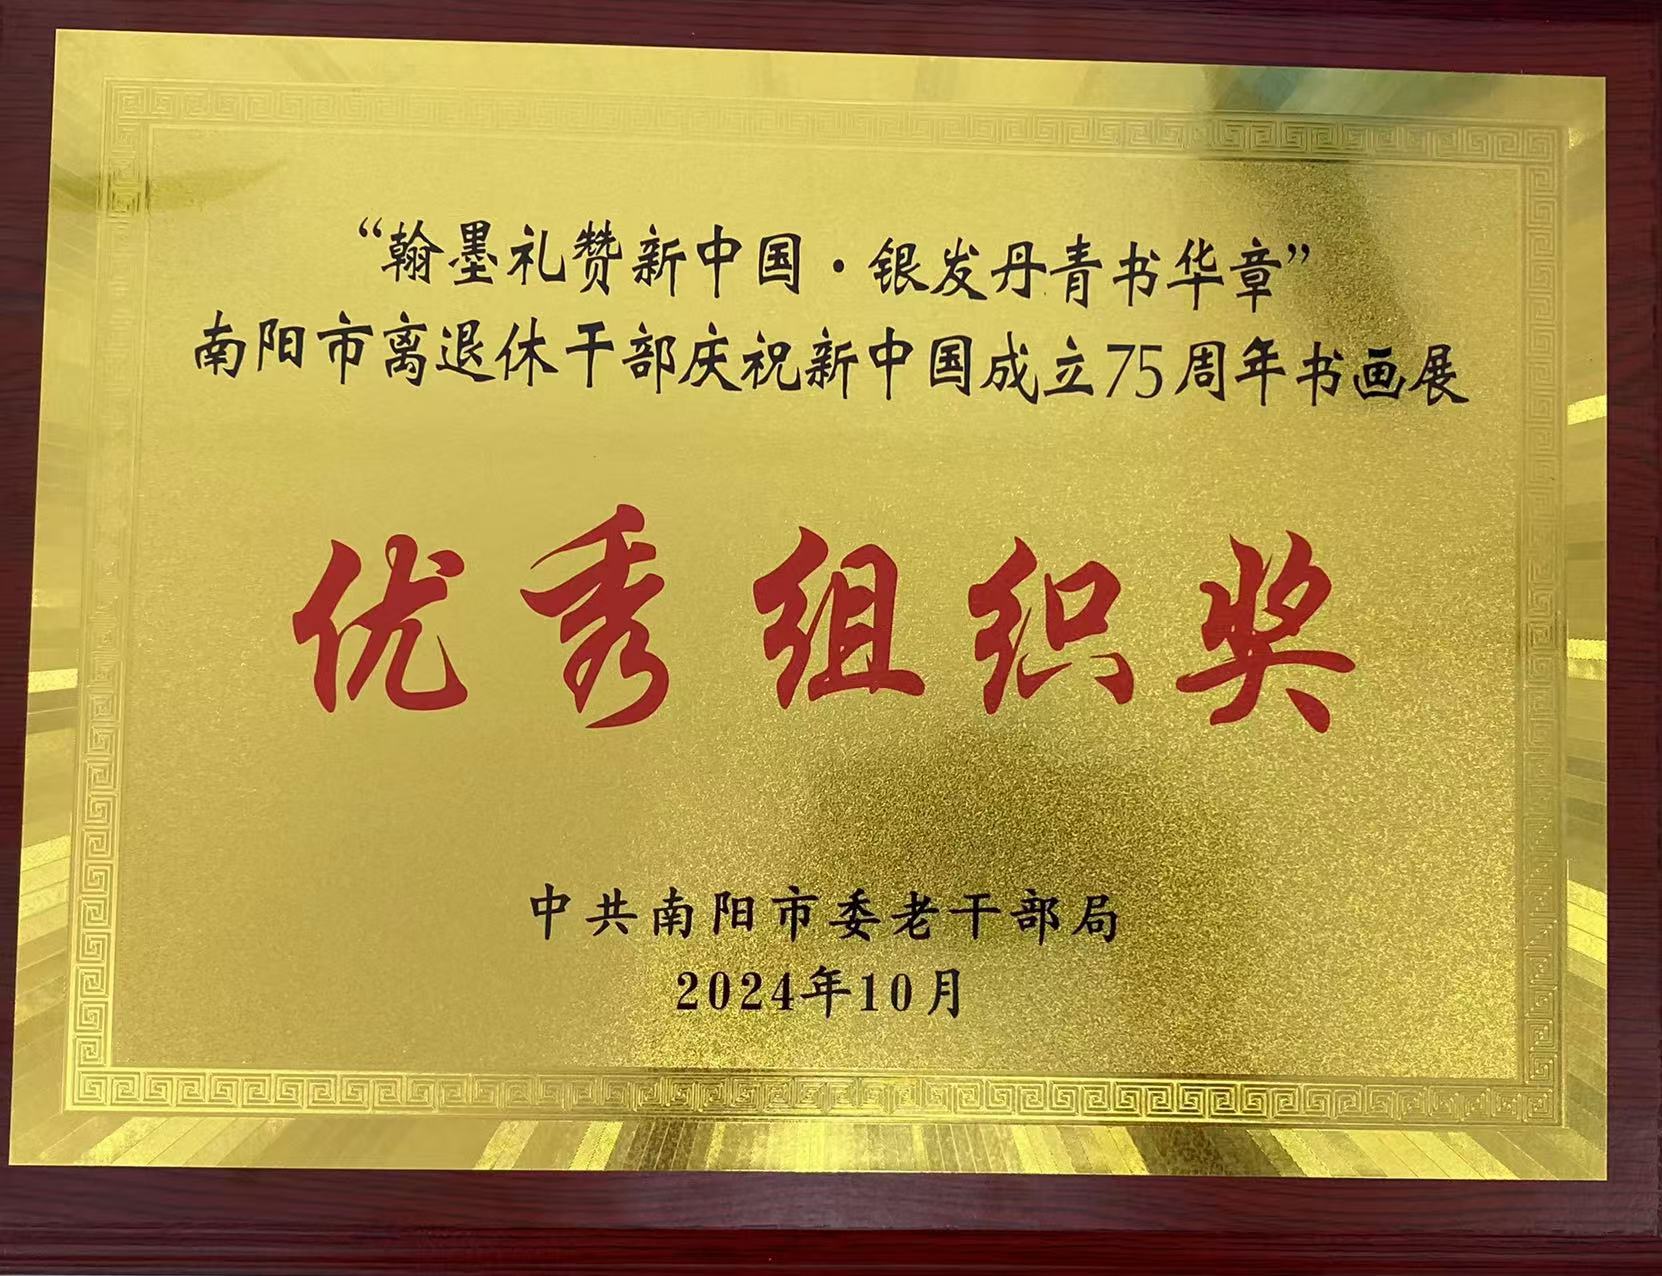 “翰墨礼赞新中国·银发丹青书华章”
南阳市离退休干部庆祝新中国成立75周年书画展
优秀组织奖
中共南阳市委老干部局
2024年10月